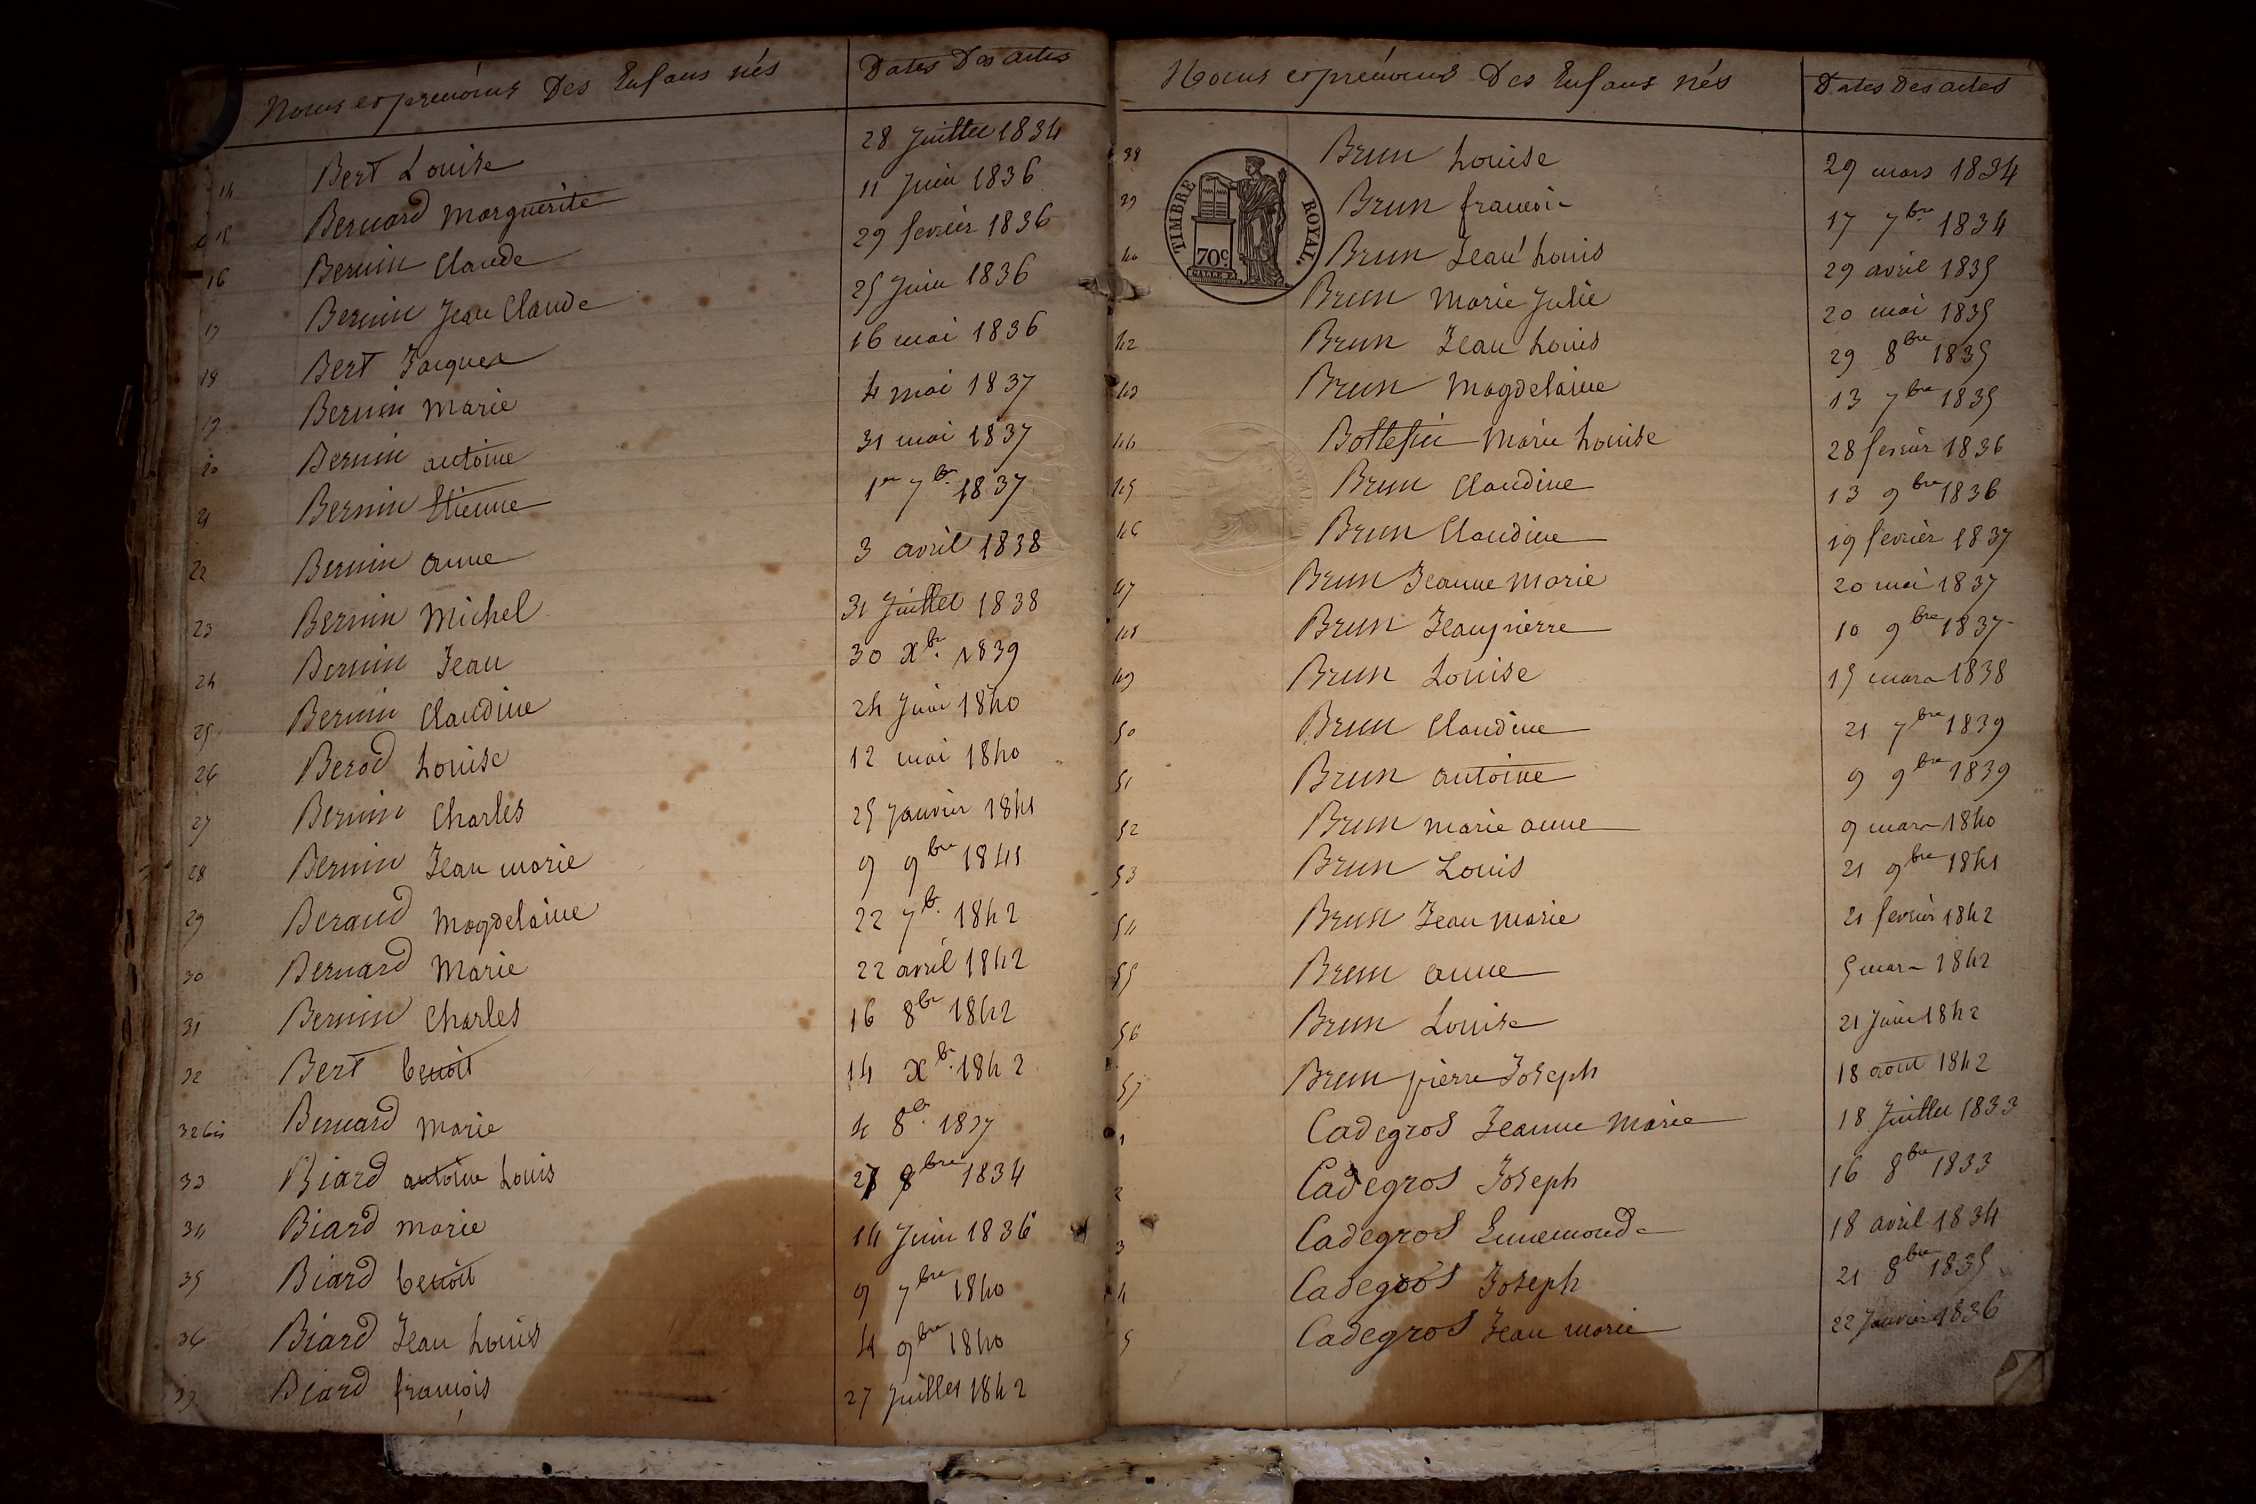 Noms et prénoms Des Enfans nés Dates Des actes
14 Bert Louise 28 Juillet 1834
15 Bernard Marguerite 11 Juin 1836
16 Bernin Claude 29 fevrier 1836
17 Bernin Jean Claude 25 Juin 1836
18 Bert Jacques 16 mai 1836
19 Bernin Marie 4 mai 1837
20 Bernin antoine 31 mai 1837
21 Bernin Etienne 1er 7br 1837
22 Bernin anne 3 avril 1838
23 Bernin Michel 31 Juillet 1838
24 Bernin Jean 30 Xbr. 1839
25 Bernin Claudine 24 Juin 1840
26 Berod Louise 12 mai 1840
27 Bernin Charles 25 Janvier 1841
28 Bernin Jean marie 9 9bre 1841
29 Beraud Magdelaine 22 7b. 1842
30 Bernard Marie 22 avril 1842
31 Bernin Charles 16 8br 1842
32 Bert benoit 14 Xb. 1842
32 bis Bernard Marie 4 8b. 1837
33 Biard antoine Louis 27 8bre 1834
34 Biard Marie 14 Juin 1836
35 Biard benoit 9 7bre 1840
36 Biard Jean Louis 4 9bre 1840
37 Biard françois 27 Juillet 1842
Noms et prénoms Des Enfans nés Dates Des actes
TIMBRE ROYAL.
70c
38 Brun Louise 29 mars 1834
39 Brun francois 17 7bre 1834
40 Brun Jean Louis 29 avril 1835
Brun Marie Julie 20 mai 1835
42 Brun Jean Louis 29 8bre 1835
43 Brun Magdelaine 13 7bre 1835
44 Marie Louise 28 fevrier 1836
45 Brun Claudine 13 9bre 1836
46 Brun Claudine 19 fevrier 1837
47 Brun Jeanne Marie 20 mai 1837
48 Brun Jean pierre 10 9bre 1837
49 Brun Louise 15 mars 1838
50 Brun Claudine 21 7bre 1839
51 Brun antoine 9 9bre 1839
52 Brun marie anne 9 mars 1840
53 Brun Louis 21 9bre 1841
54 Brun Jean Marie 21 fevrier 1842
55 Brun anne 5 mars 1842
56 Brun Louise 21 Juin 1842
57 Brun pierre Joseph 18 aout 1842
1 Cadegros Jeanne Marie 18 Juillet 1833
2 Cadegros Joseph 16 8bre 1833
3 Cadegros Ennemonde 18 avril 1834
4 Cadegros Joseph 21 8bre 1835
5 Cadegros Jean marie 22 Janvier 1836